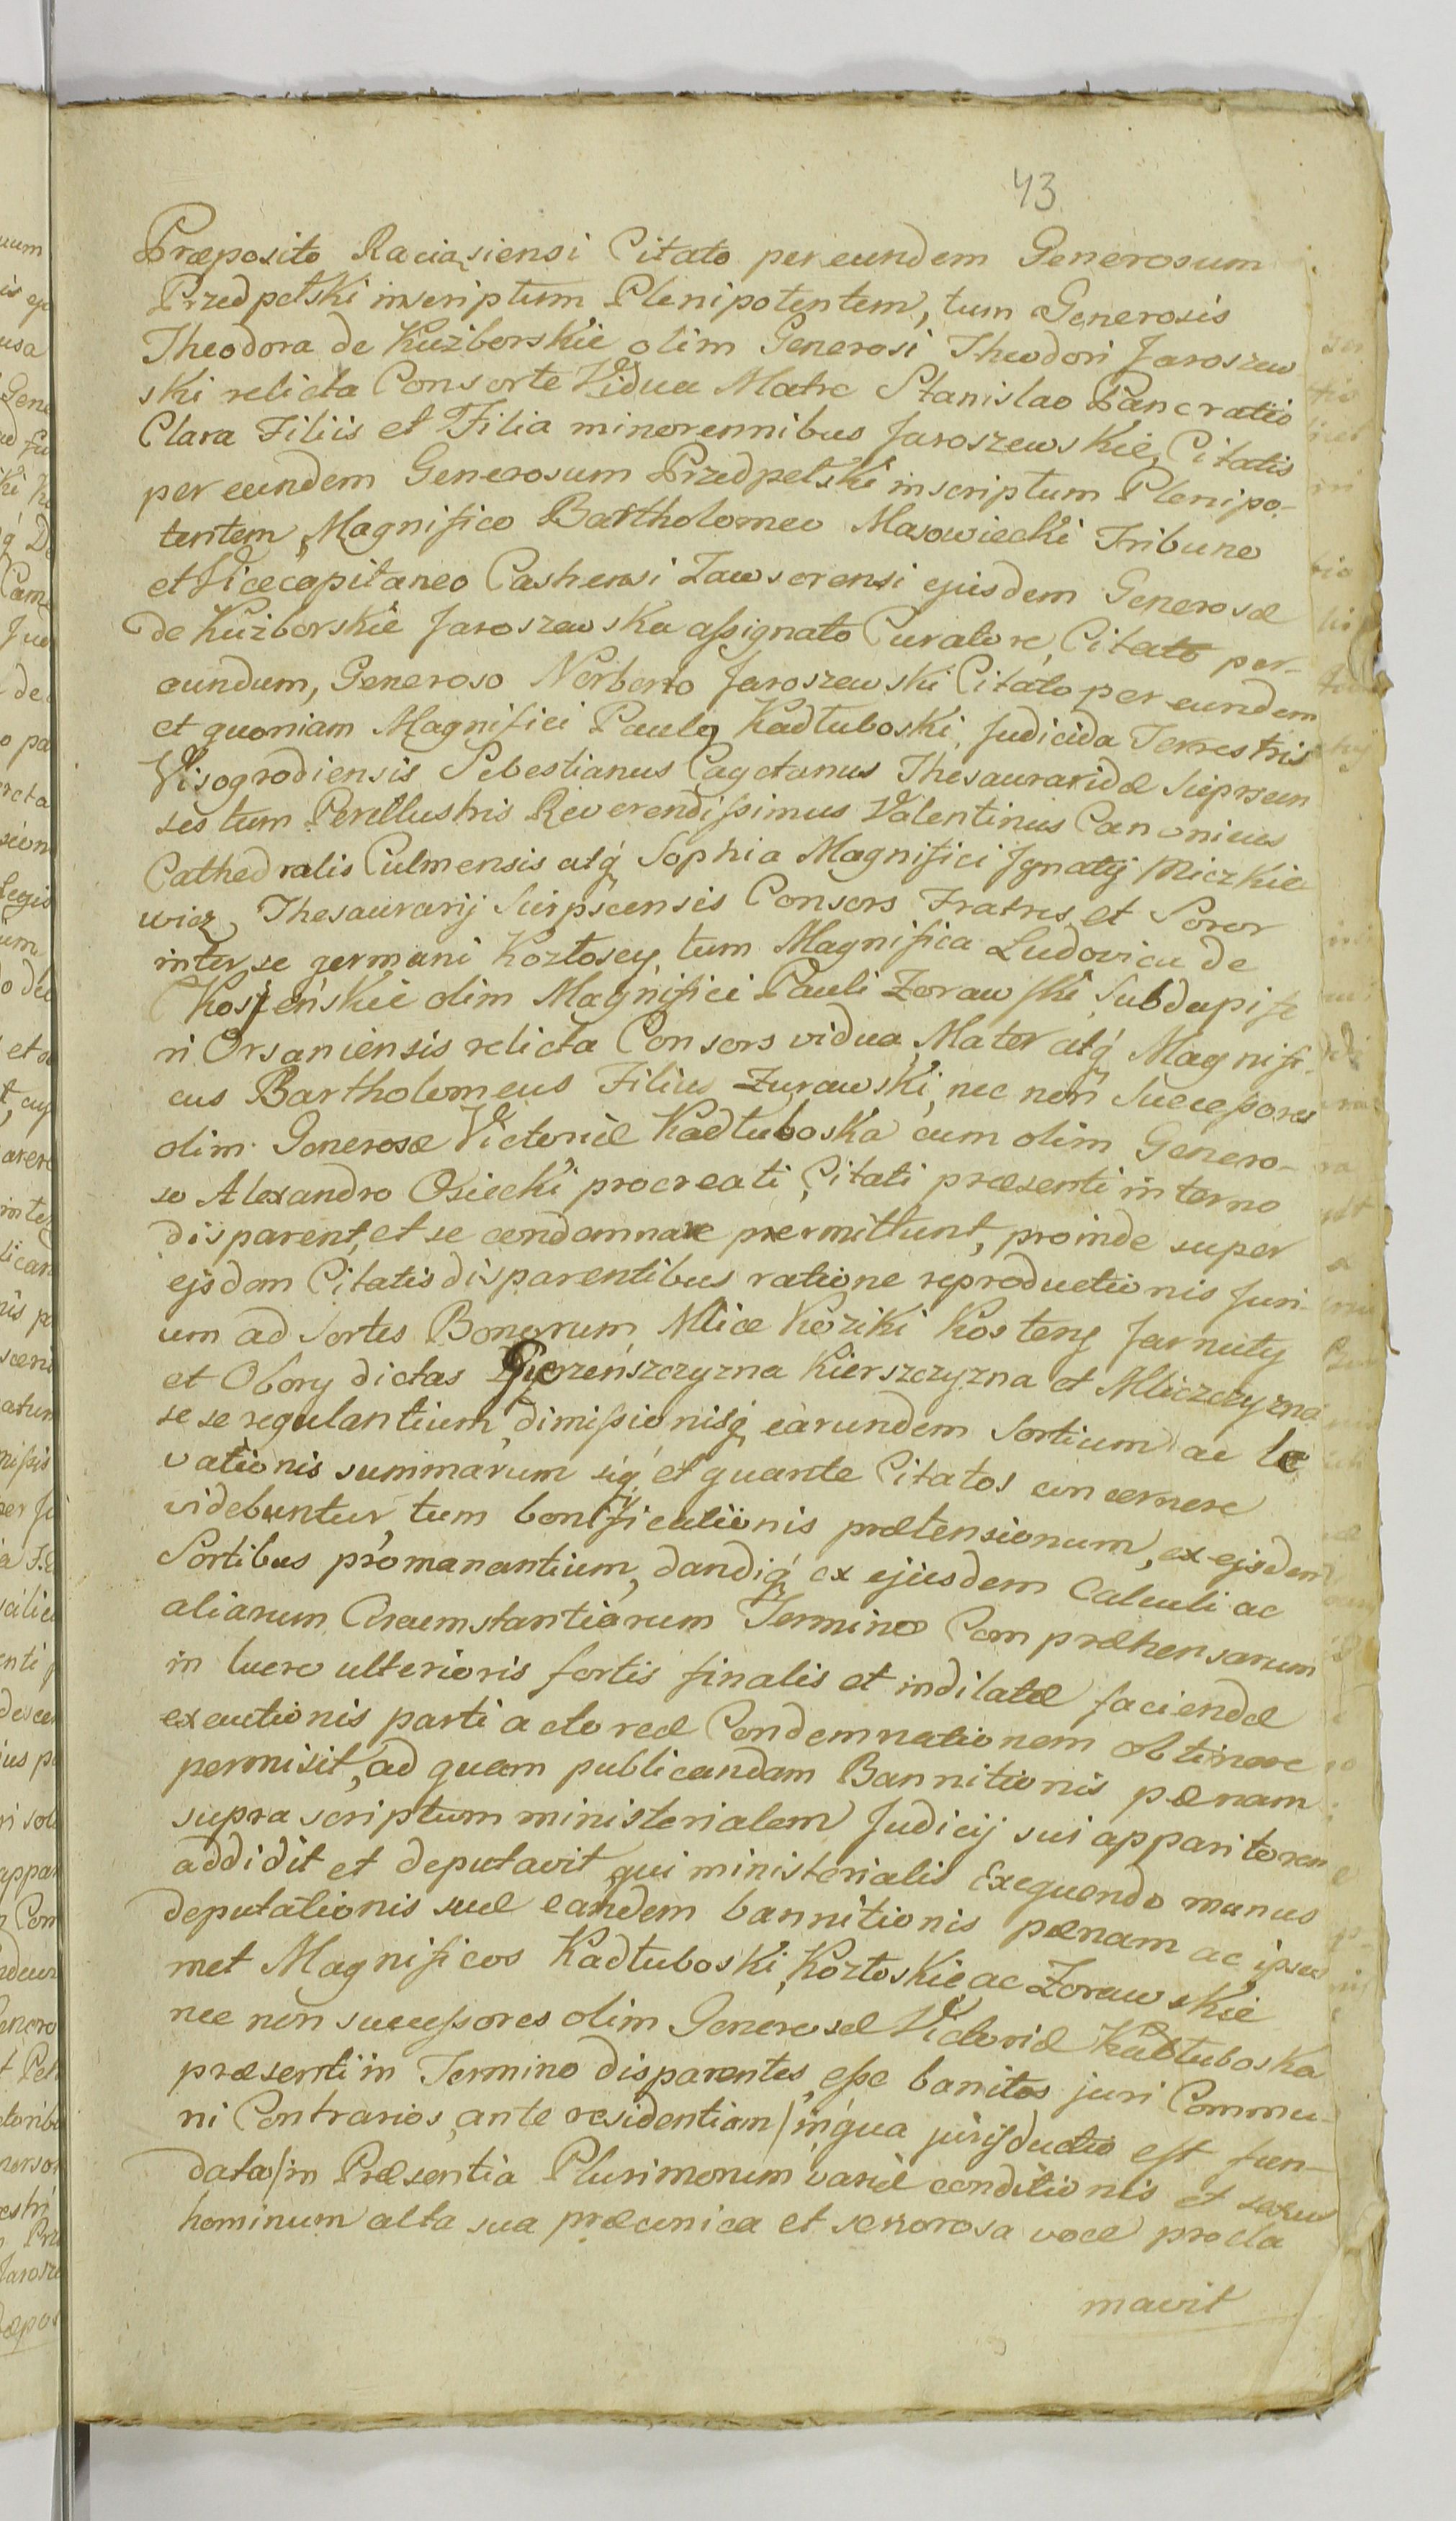 43
Præposito Raciąsiensi Citato per eundem Generosum
Przedpełski inscriptum Plenipotentem, tum Generosis
Theodora de Kuzborskie olim Generosi Theodori Jaroszew
ski relicta Consorte Vidua Matre Stanislao Pancratio
Clara Filiis et Filia minorennibus Jaroszewskie, Citatis
per eundem Generosum Przedpełski inscriptum Plenipo-
tentem, Magnifico Bartholomeo Mazowiecki Tribuno
et Vicecapitaneo Castrensi Zawscrensi ejusdem Generosæ
de Kuzborskie Jaroszewska assignato Curatore, Citato per
eundum, Generoso Norberto Jaroszewski Citato per eundem
et quoniam Magnifici Paulq Kadłuboski, Judicida Terrestris
Visogrodiensis Sebestianus Cagetanus Thesauraridæ Sieprcen
ses tum Perillustris Reverendissimus Valentinus Canonicus
Cathedralis Culmensis atq́ Sophia Magnifici Jgnatij Miczkie
wicz, Thesaurarij Sierpscensis Consors Fratres et Soror
inter se germani Kozłosey, tum Magnifica Ludovica de
Kosseńskie olim Magnifici Pauli Zoraw ski, Subdapife
ri Orsaniensis relicta Consors vidua, Mater atq́ Magnifi-
cus Bartholomeus Filius Zurawski, nec non Successores
olim Generosæ Victoriæ Kadłuboska cum olim Genero-
so Alexandro Osiecki procreati, Citati præsenti in terno
disparent, et se condamnare permittunt, proinde super
ejsdem Citatis disparentibus ratione reproductionis Juri-
um ad Sortes Bonorum Mlice Koziki Kosteny Jarnuty
et Obory dictas Gierzeńszczyzna Kierszczyzna et Mliczczyzna
se se regulantium, dimissionisq́ earundem Sortium ac le
vationis summarum siq́ et quante Citatos concernere
videbuntur, tum bonificationis prætensionum, ex ejsdem
Sortibus promanantium, dandiq́ ex ejusdem Calculi ac
aliarum Circumstantiarum Termino Compræhensarum
in lucro ulterioris fortis finalis et indilatæ faciendæ
executionis parti actoreæ Condemnationem obtinere
permisit, ad quam publicandam Bannitionis pænam
supra scriptum ministerialem Judicij sui apparitorem
addidit et deputavit, qui ministerialis Exequendo munus
deputationis suæ eandem bannitionis pænam ac ipsos
met Magnificos Kadłuboski, Kozłoskie, ac Zorawskie
nec non successores olim Generosæ Victoriæ Kadłuboska
præsenti in Termino disparentes, esse banitos juri Commu-
ni Contrarios, ante residentiam / in qua jurisductio est fun-
data / in Præsentia Plurimorum variæ conditionis et sexus
hominum alta sua præconica et sonorosa voce procla
mavit